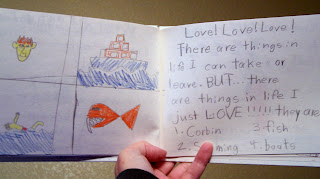 Love! Love! Love!
There are things in
life I can take or
leave. BUT.. there
are things in life I
just LOVE !!!!! they are
1. Corbin 3. fish
2. Swimming 4. boats